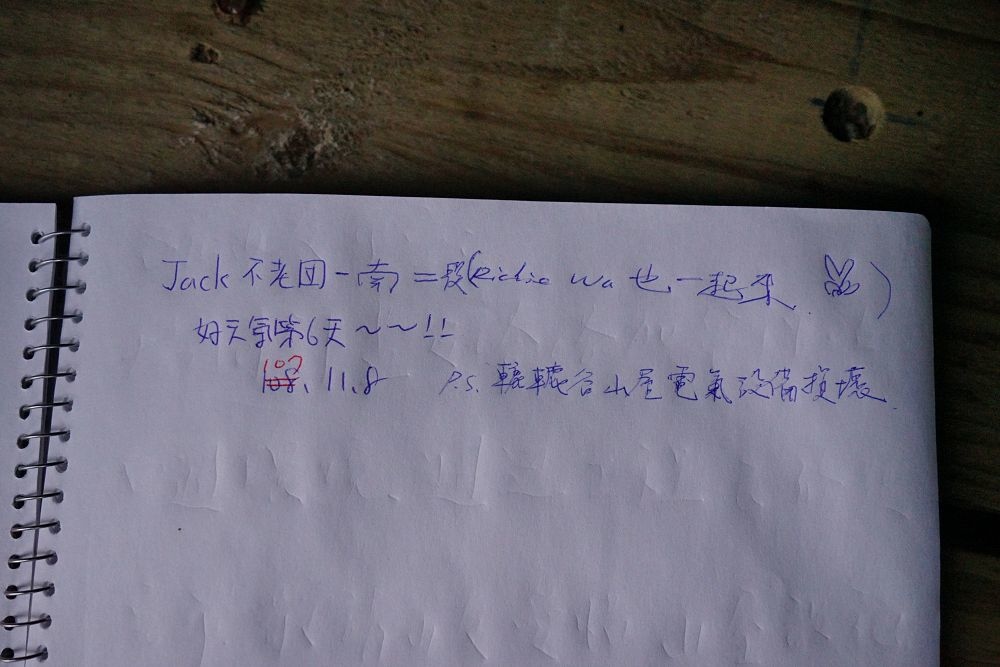 Jack 不老团－南二段(Richie Wa 也一起來 )
好天氣第6天～～!!
107. 11.8 P.S. 轆轆谷山屋電氣設備損壞.